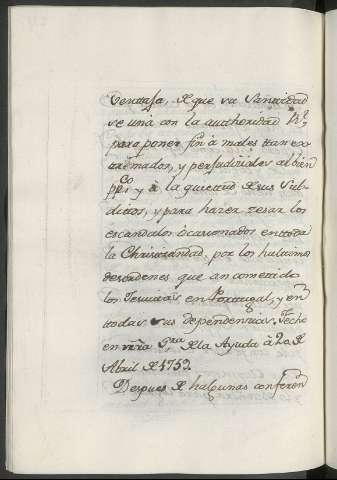 Ventaja, el que su Santidad
se una con la authoridad Rl.
para poner fin à males tan ex-
tremados, y perjudiciales al bien
ppco. y à la quietud de sus Sub-
ditos, y para hazer zesar los
escandalos ocacionados en toda
la Christiandad, por los hultimos
desordenes que an cometido
los Jesuitas en Portugal, y en
todas sus dependencias. Fecho
en nra Sra. de la Ayuda à 20 de
Abril de 1759.
Despues de halgunas conferen